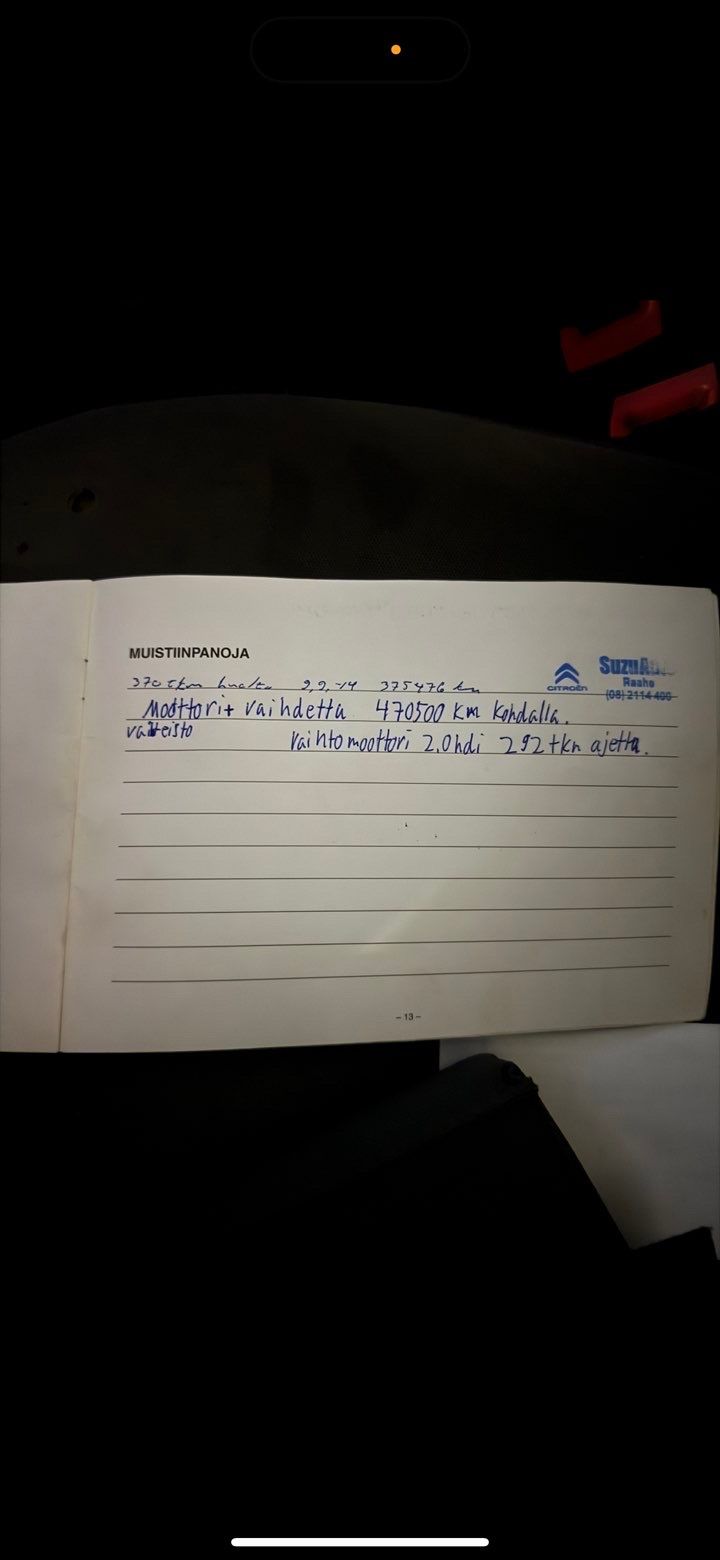 MUISTIINPANOJA
370 tkm huolto 9,9,-14 375476 km
CITROËN
SuzuA
Raahe
(08) 2114 400
Moottori+ vaihdettu 470500 km kohdalla.
vaihteisto
Vaihtomoottori 2.0hdi 292 tkm ajettu.
– 13 –